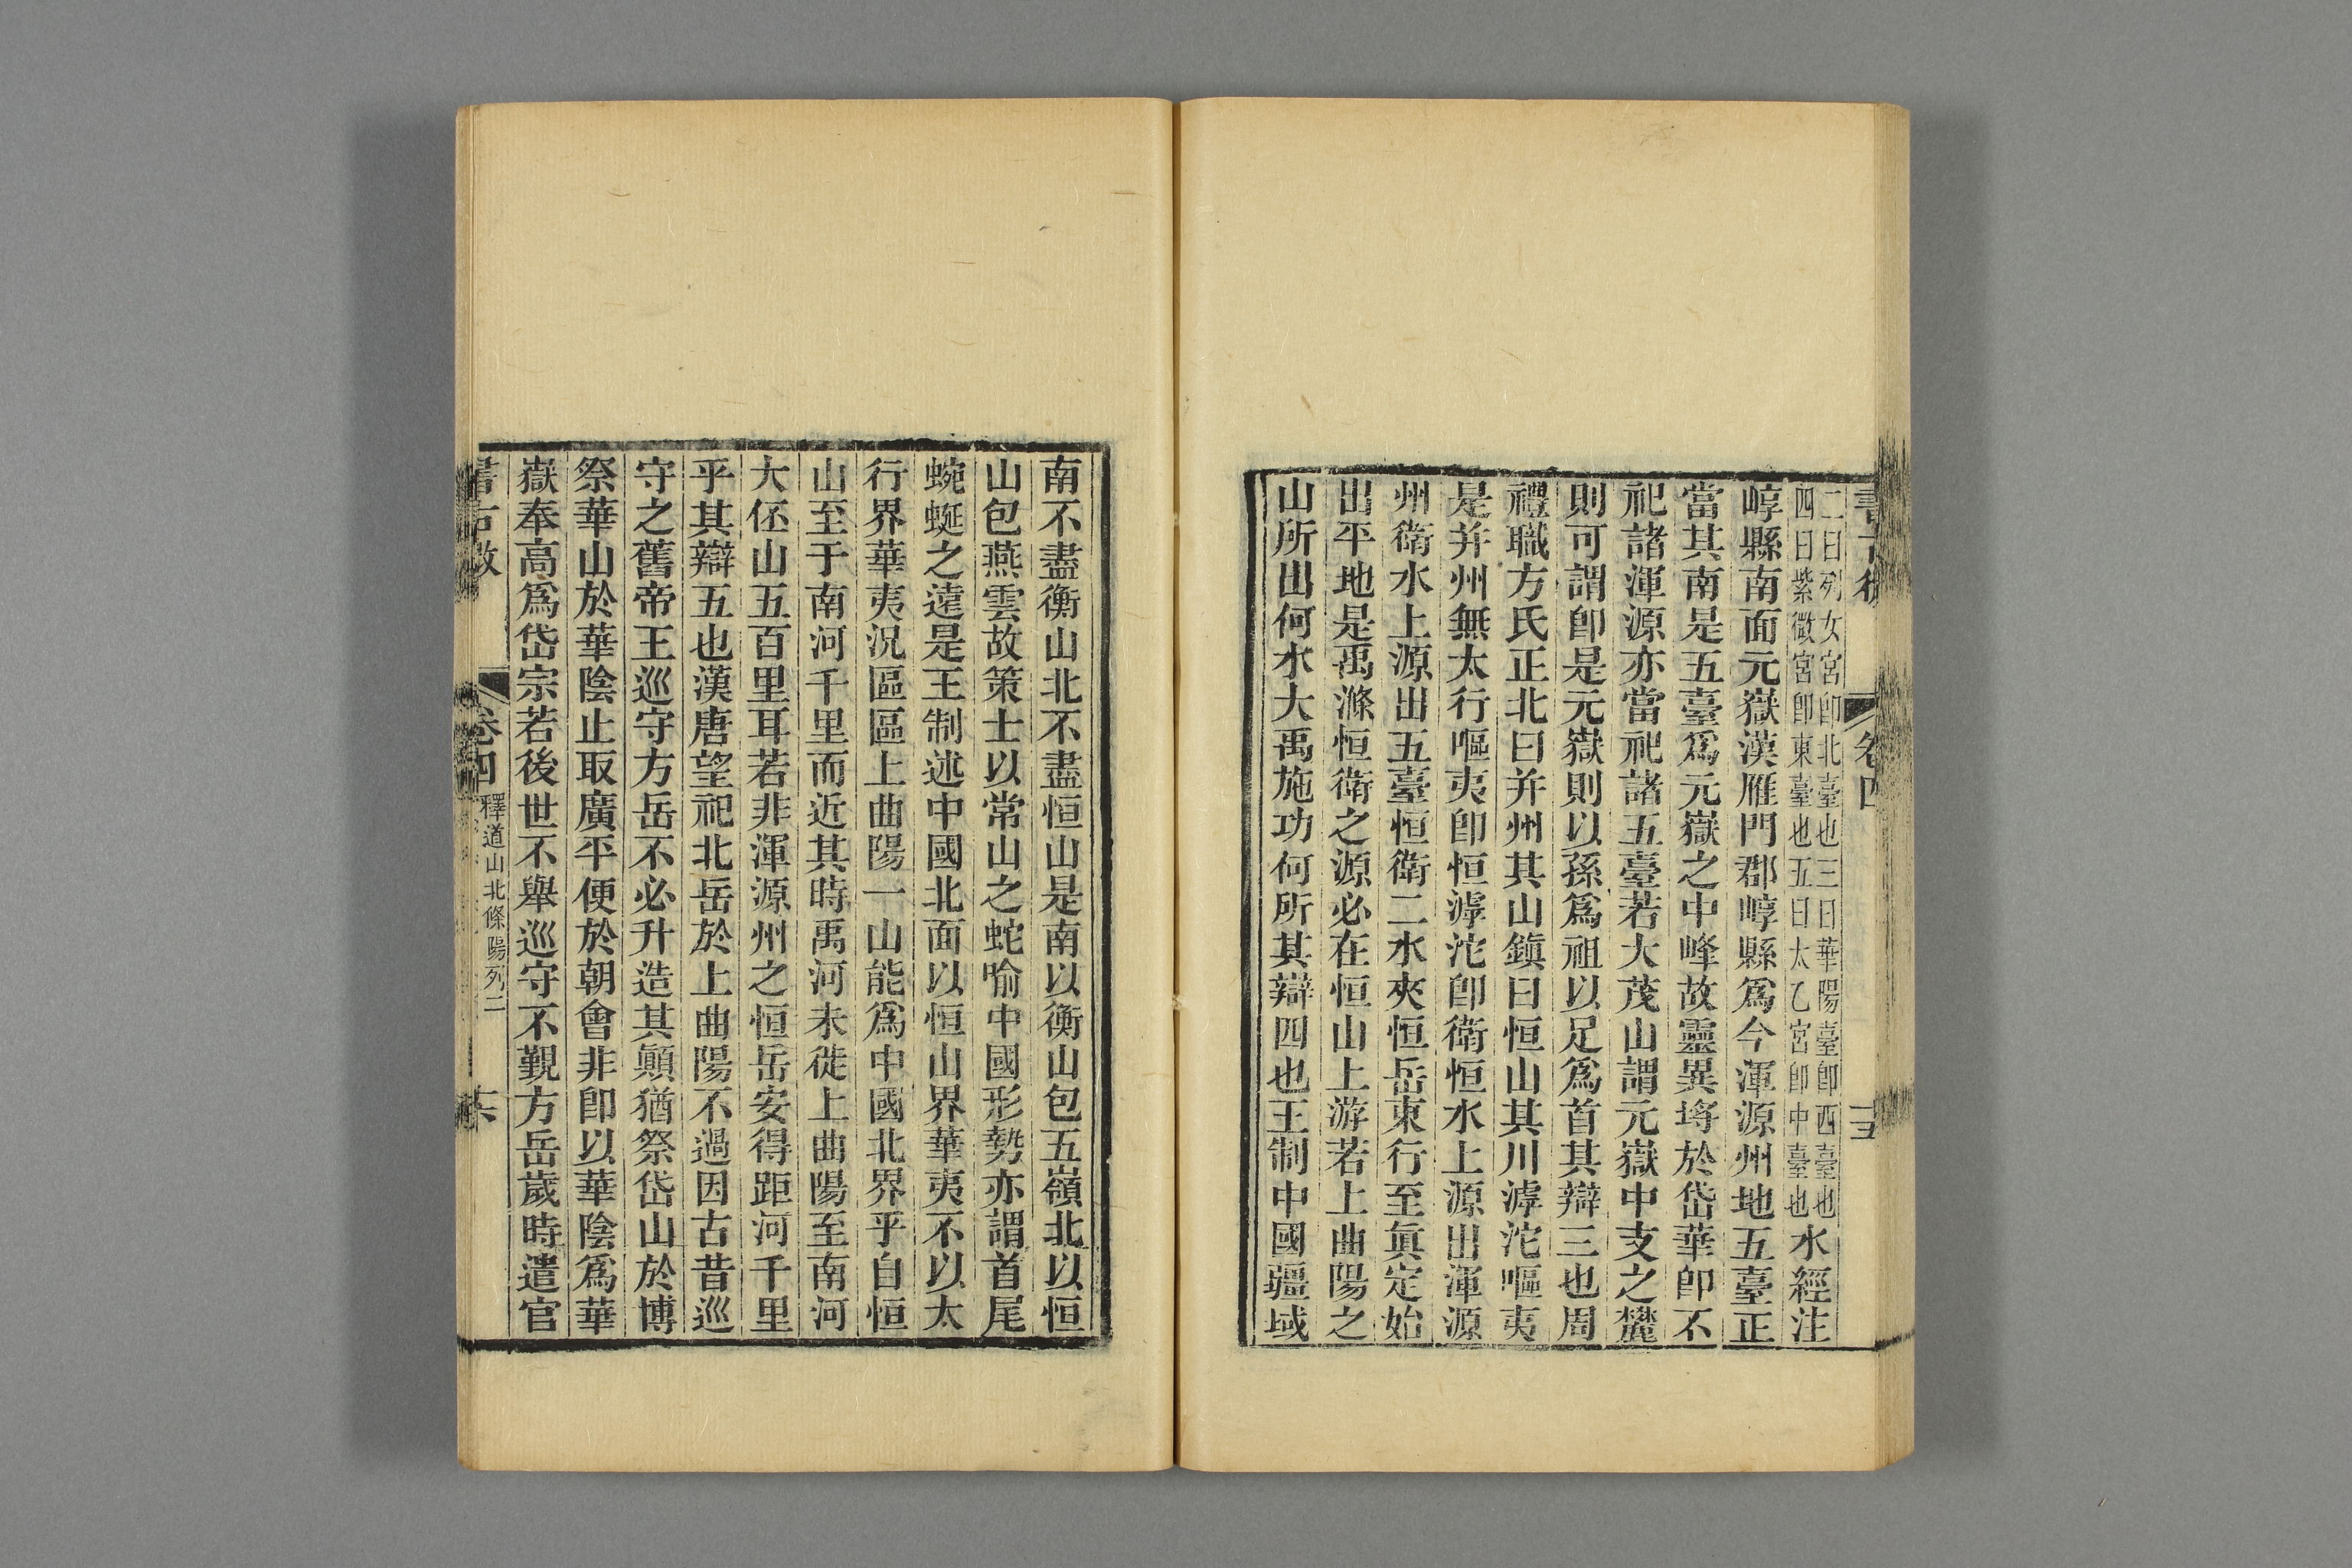 二曰列女宮卽北臺也三曰華陽臺卽西臺也
四曰紫微宮卽東臺也五曰太乙宮卽中臺也
水經注
崞縣南面元嶽漢雁門郡崞縣爲今渾源州地五臺正
當其南是五臺爲元嶽之中峰故靈異埒於岱華卽不
祀諸渾源亦當祀諸五臺若大茂山謂元嶽中支之麓
則可謂卽是元嶽則以孫爲祖以足爲首其辯三也周
禮職方氏正北曰并州其山鎮曰恒山其川滹沱嘔夷
是并州無太行嘔夷卽恒滹沱卽衛恒水上源出渾源
州衛水上源出五臺恒衛二水夾恒岳東行至眞定始
出平地是禹滌恒衛之源必在恒山上游若上曲陽之
山所出何水大禹施功何所其辯四也王制中國疆域
卷四
南不盡衡山北不盡恒山是南以衡山包五嶺北以恒
山包燕雲故策士以常山之蛇喻中國形勢亦謂首尾
蜿蜒之遠是王制述中國北面以恒山界華夷不以太
行界華夷況區區上曲陽一山能爲中國北界乎自恒
山至于南河千里而近其時禹河未徙上曲陽至南河
大伾山五百里耳若非渾源州之恒岳安得距河千里
乎其辯五也漢唐望祀北岳於上曲陽不過因古昔巡
守之舊帝王巡守方岳不必升造其顚猶祭岱山於博
祭華山於華陰止取廣平便於朝會非卽以華陰爲華
嶽奉高爲岱宗若後世不舉巡守不覲方岳歲時遣官
書古微
卷四
釋道山北條陽列二